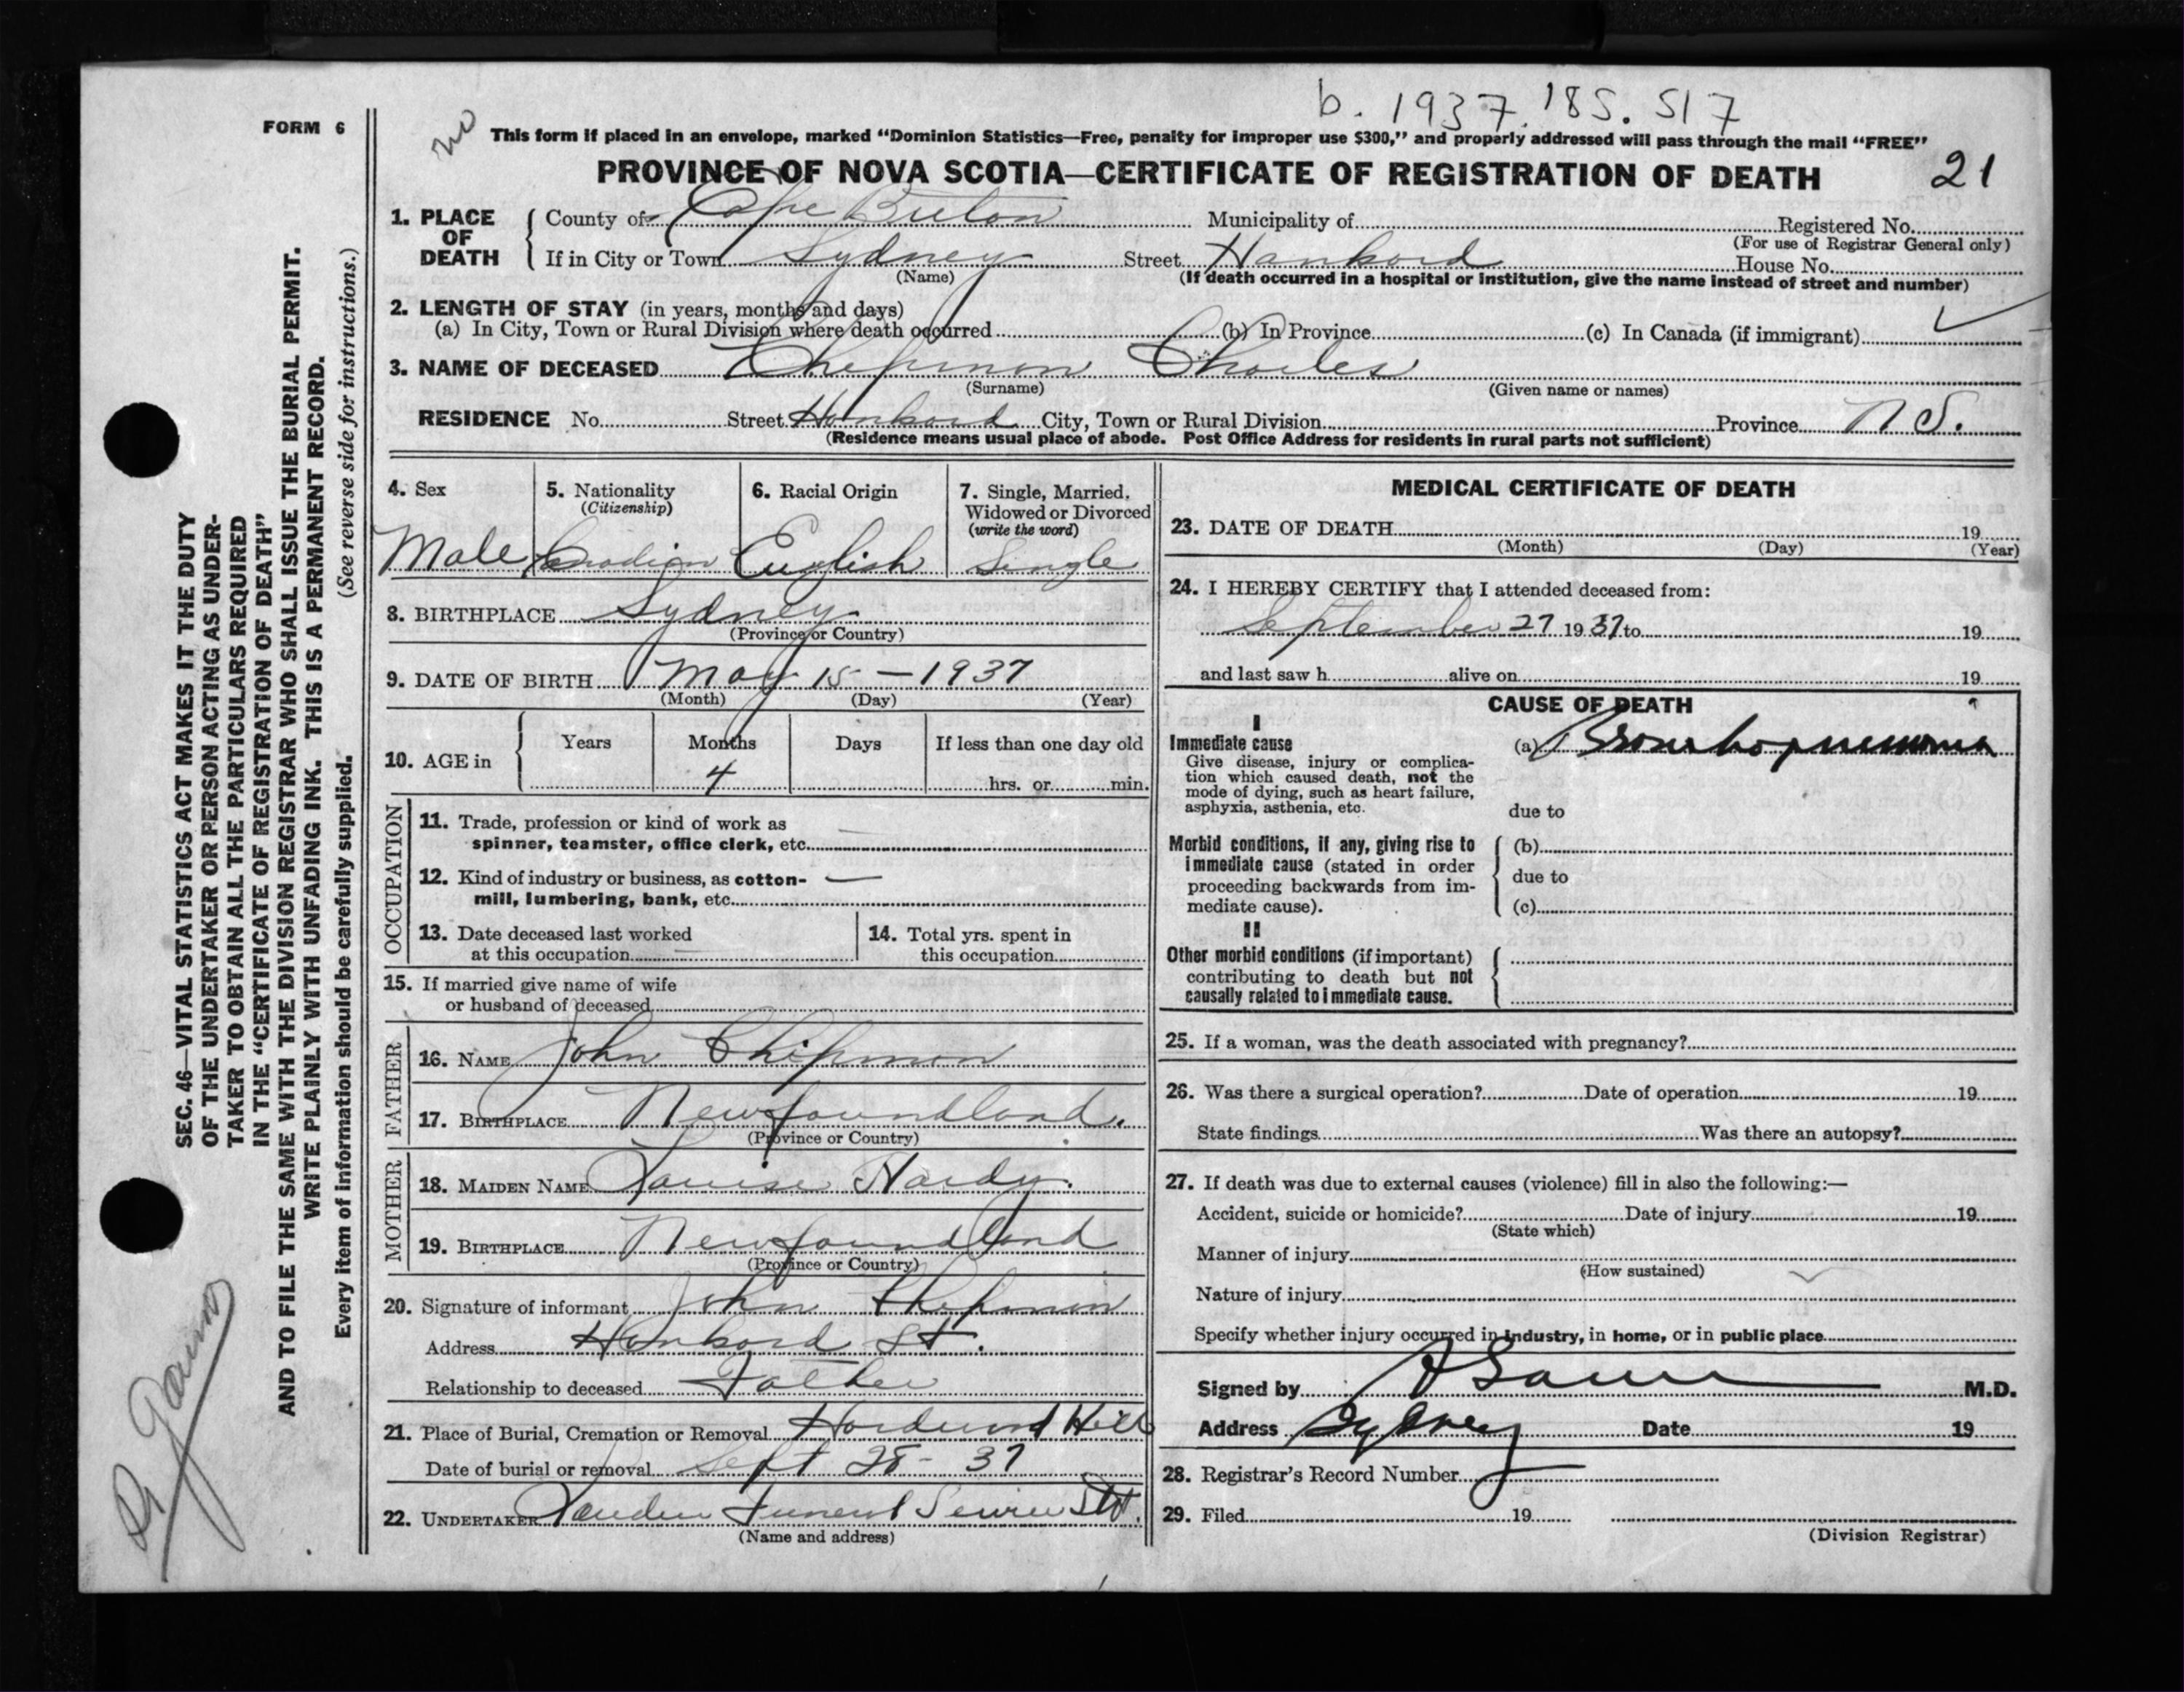 b. 1937. 185. 517
FORM 6
no
This form if placed in an envelope, marked "Dominion Statistics—Free, penalty for improper use $300," and properly addressed will pass through the mail "FREE"
PROVINCE OF NOVA SCOTIA—CERTIFICATE OF REGISTRATION OF DEATH 21
1. PLACE OF DEATH County of Cape Breton Municipality of Registered No.
(For use of Registrar General only)
If in City or Town Sydney Street Hankard House No.
(Name) (If death occurred in a hospital or institution, give the name instead of street and number)
2. LENGTH OF STAY (in years, months and days)
(a) In City, Town or Rural Division where death occurred (b) In Province (c) In Canada (if immigrant)
3. NAME OF DECEASED Chipman Charles
(Surname) (Given name or names)
RESIDENCE No. Street Hankard City, Town or Rural Division Province N S.
(Residence means usual place of abode. Post Office Address for residents in rural parts not sufficient)
4. Sex 5. Nationality 6. Racial Origin 7. Single, Married,
(Citizenship) Widowed or Divorced
(write the word)
Male Canadian English Single
8. BIRTHPLACE Sydney
(Province or Country)
9. DATE OF BIRTH May 15 — 1937
(Month) (Day) (Year)
10. AGE in Years Months Days If less than one day old
4 hrs. or min.
OCCUPATION
11. Trade, profession or kind of work as
spinner, teamster, office clerk, etc. —
12. Kind of industry or business, as cotton- —
mill, lumbering, bank, etc.
13. Date deceased last worked 14. Total yrs. spent in
at this occupation this occupation
15. If married give name of wife
or husband of deceased
FATHER
16. NAME John Chipman
17. BIRTHPLACE Newfoundland.
(Province or Country)
MOTHER
18. MAIDEN NAME Louise Hardy.
19. BIRTHPLACE Newfoundland
(Province or Country)
20. Signature of informant John Chipman
Address Hankard St.
Relationship to deceased Father
21. Place of Burial, Cremation or Removal Hardwood Hill
Date of burial or removal Sept 28 - 37
22. UNDERTAKER Funeral Service Ltd.
(Name and address)
MEDICAL CERTIFICATE OF DEATH
23. DATE OF DEATH 19
(Month) (Day) (Year)
24. I HEREBY CERTIFY that I attended deceased from:
September 27 19 37 to 19
and last saw h alive on 19
CAUSE OF DEATH
I
Immediate cause (a) Bronchopneumonia
Give disease, injury or complica-
tion which caused death, not the
mode of dying, such as heart failure,
asphyxia, asthenia, etc. due to
Morbid conditions, if any, giving rise to (b)
immediate cause (stated in order
proceeding backwards from im- due to
mediate cause). (c)
II
Other morbid conditions (if important)
contributing to death but not
causally related to immediate cause.
25. If a woman, was the death associated with pregnancy?
26. Was there a surgical operation? Date of operation 19
State findings Was there an autopsy?
27. If death was due to external causes (violence) fill in also the following:—
Accident, suicide or homicide? Date of injury 19
(State which)
Manner of injury
(How sustained)
Nature of injury
Specify whether injury occurred in industry, in home, or in public place
Signed by M.D.
Address Sydney Date 19
28. Registrar's Record Number
29. Filed 19
(Division Registrar)
SEC. 46—VITAL STATISTICS ACT MAKES IT THE DUTY
OF THE UNDERTAKER OR PERSON ACTING AS UNDER-
TAKER TO OBTAIN ALL THE PARTICULARS REQUIRED
IN THE "CERTIFICATE OF REGISTRATION OF DEATH"
AND TO FILE THE SAME WITH THE DIVISION REGISTRAR WHO SHALL ISSUE THE BURIAL PERMIT.
WRITE PLAINLY WITH UNFADING INK. THIS IS A PERMANENT RECORD.
Every item of information should be carefully supplied. (See reverse side for instructions.)